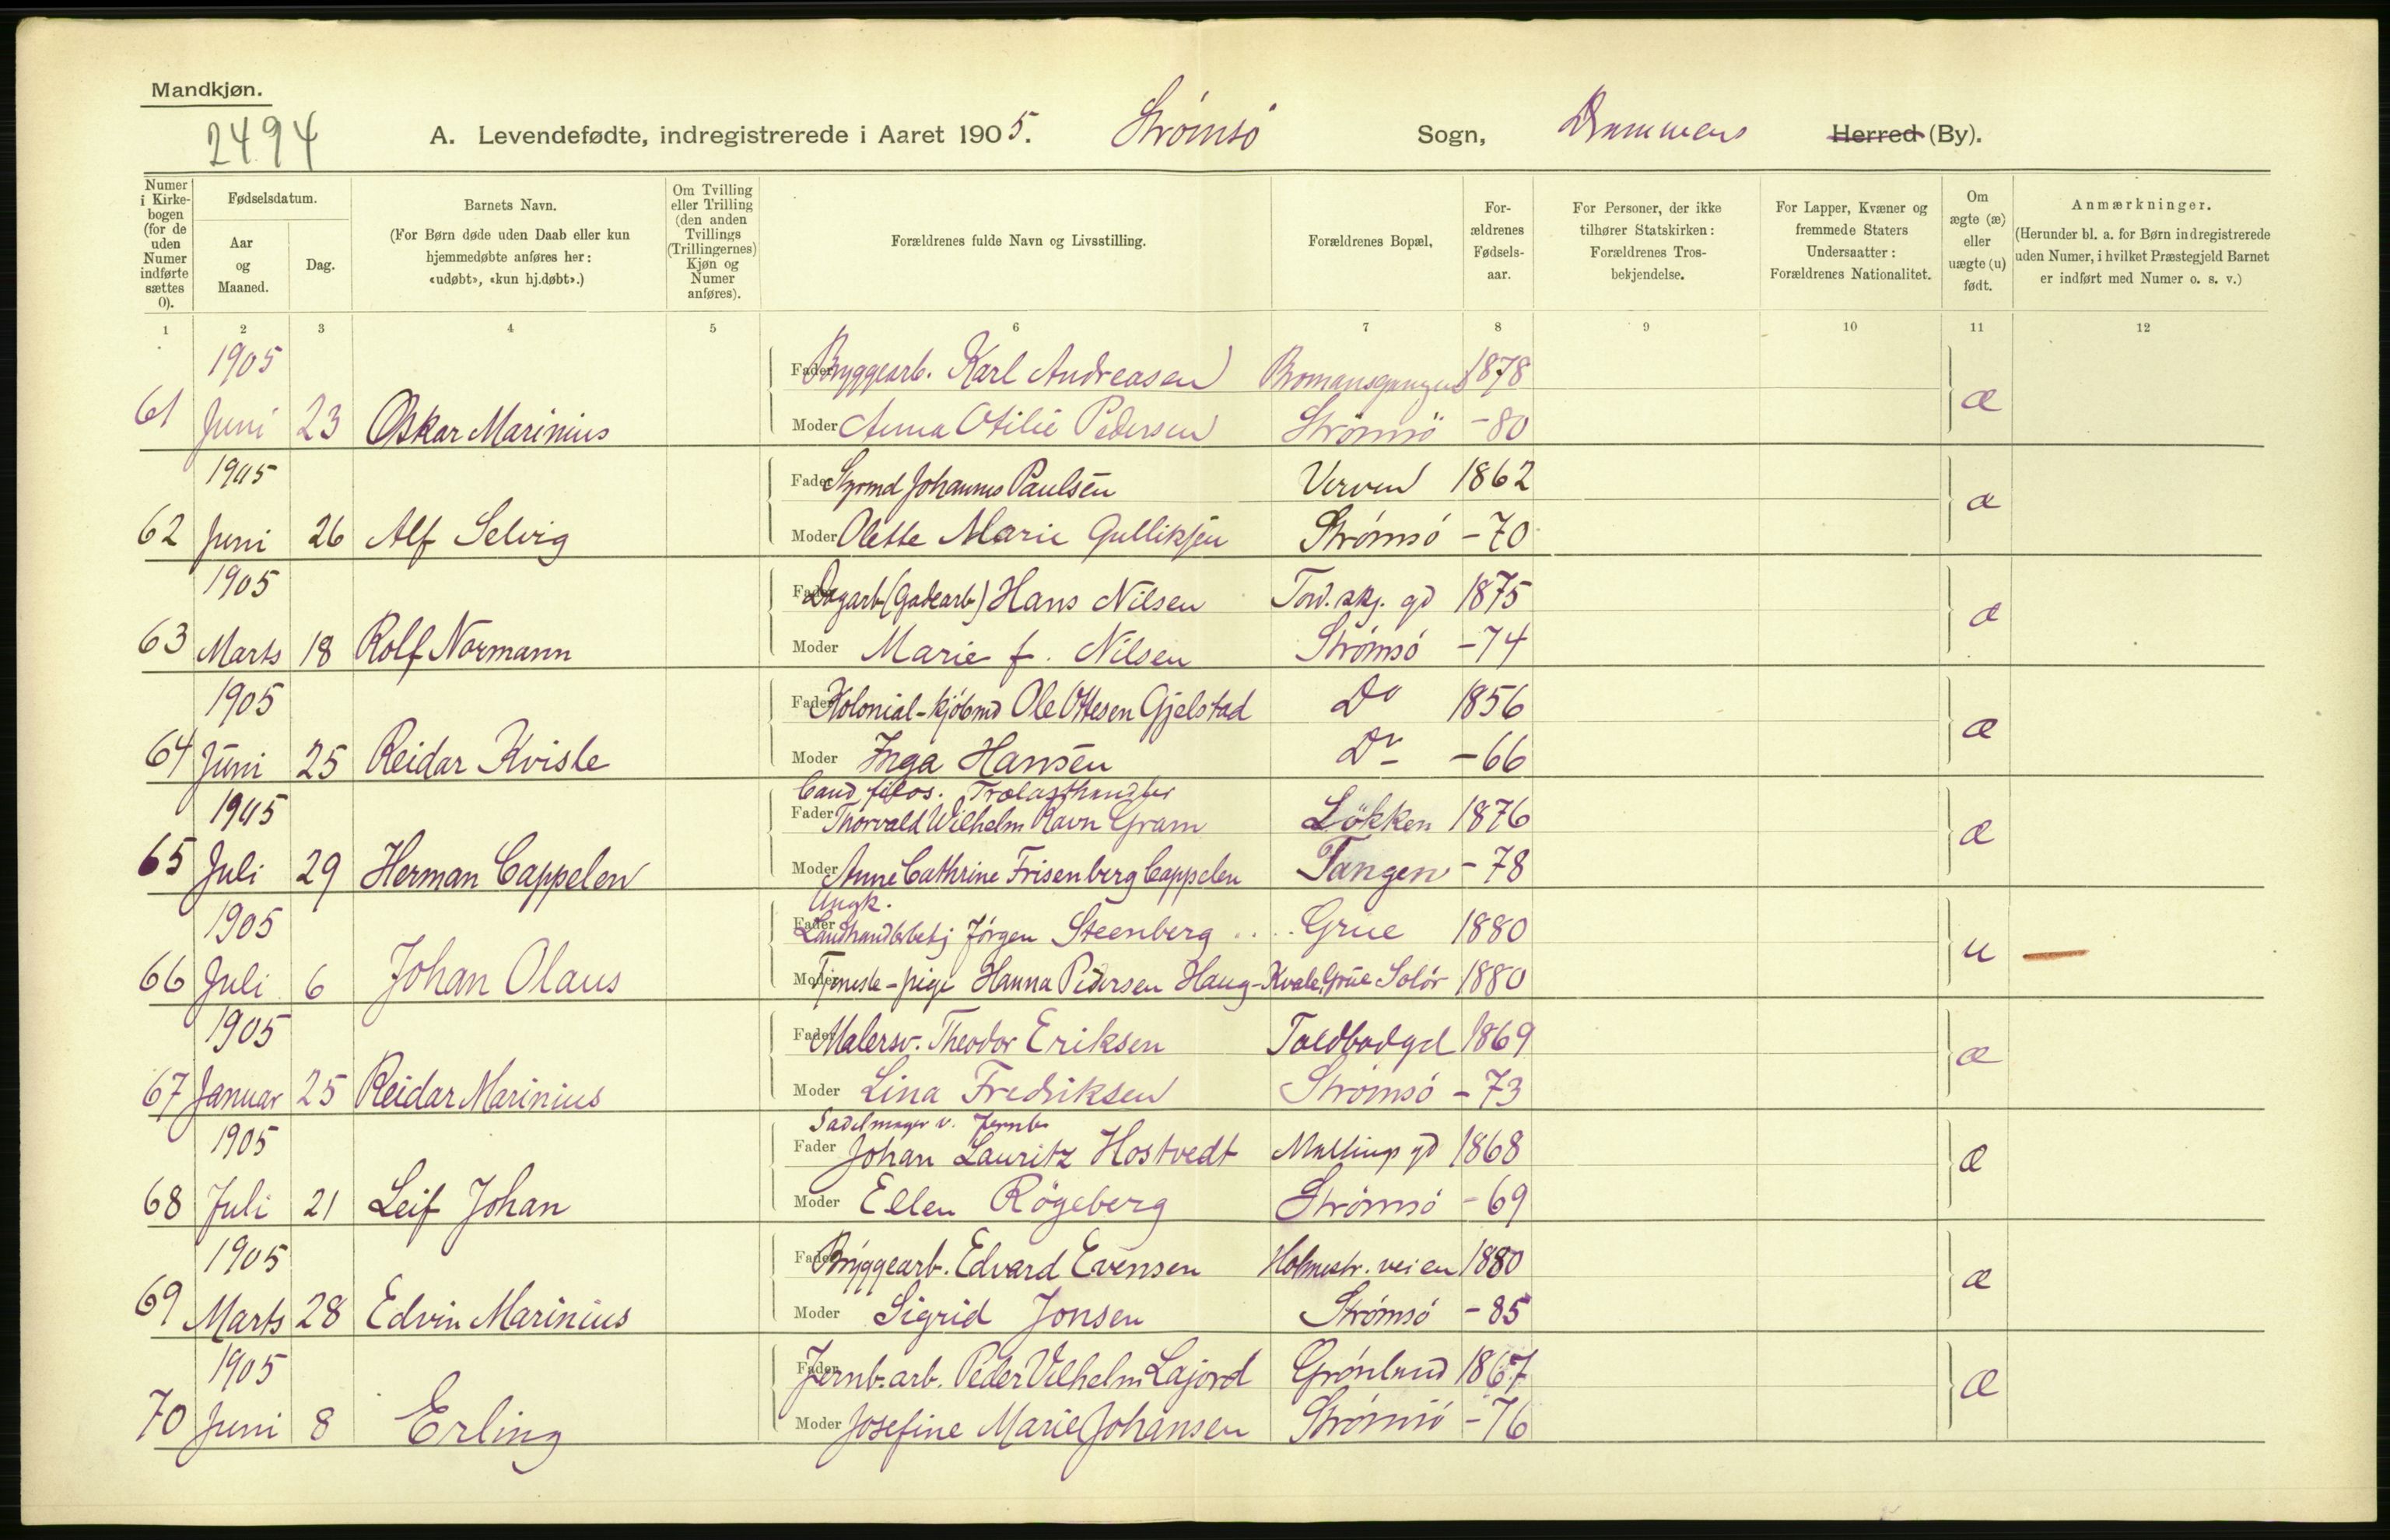 Mandkjøn.
2494
A. Levendefødte, indregistrerede i Aaret 1905. Strømsø Sogn, Drammens Herred (By).
Numer i Kirkebogen (for de uden Numer indførte sættes 0).
Fødselsdatum.
Aar og Maaned.
Dag.
Barnets Navn.
(For Børn døde uden Daab eller kun hjemmedøbte anføres her: «udøbt», «kun hj.døbt».)
Om Tvilling eller Trilling (den anden Tvillings (Trillingernes) Kjøn og Numer anføres).
Forældrenes fulde Navn og Livsstilling.
Forældrenes Bopæl,
Forældrenes Fødselsaar.
For Personer, der ikke tilhører Statskirken: Forældrenes Trosbekjendelse.
For Lapper, Kvæner og fremmede Staters Undersaatter: Forældrenes Nationalitet.
Om ægte (æ) eller uægte (u) født.
Anmærkninger.
(Herunder bl. a. for Børn indregistrerede uden Numer, i hvilket Præstegjeld Barnet er indført med Numer o. s. v.)
1 2 3 4 5 6 7 8 9 10 11 12
1905 Fader Bryggearb. Karl Andreasen Bromansgangen 1878
61 Juni 23 Oskar Marinius Moder Anna Otilie Pedersen Strømsö -80 æ
1905 Fader Styrmd Johannes Paulsen Verven 1862
62 Juni 26 Alf Selvig Moder Olette Marie Gulliksen Strømsö -70 æ
1905 Fader Dagarb (Gadearb) Hans Nilsen Tord. skj. gd 1875
63 Marts 18 Rolf Normann Moder Marie f. Nilsen Strømsö -74 æ
1905 Fader Kolonial-kjøbmd Ole Ottesen Gjelstad Do 1856
64 Juni 25 Reidar Kvisle Moder Inga Hansen Do -66 æ
Cand. filos. Trælasthandler
1905 Fader Thorvald Wilhelm Ravn Gram Lökken 1876
65 Juli 29 Herman Cappelen Moder Anne Cathrine Frisenberg Cappelen Tangen -78 æ
Ungk.
1905 Fader Landhandlsbetj Jörgen Steenberg .... Grue 1880
66 Juli 6 Johan Olaus Moder Tjeneste-pige Hanna Pedersen Haug-Kvale, Grue Solör 1880 u
1905 Fader Malersv. Theodor Eriksen Toldbodgd 1869
67 Januar 25 Reidar Marinius Moder Lina Fredriksen Strømsö -73 æ
Sadelmager v. Jernb
1905 Fader Johan Lauritz Hostvedt gd 1868
68 Juli 21 Leif Johan Moder Ellen Rögeberg Strømsö -69 æ
1905 Fader Bryggearb. Edvard Evensen Holmestr. veien 1880
69 Marts 28 Edvin Marinius Moder Sigrid Jonsen Strømsö -85 æ
1905 Fader Jernb. arb. Peder Vilhelm Lajord Grønland 1867
70 Juni 8 Erling Moder Josefine Marie Johansen Strømsö -76 æ